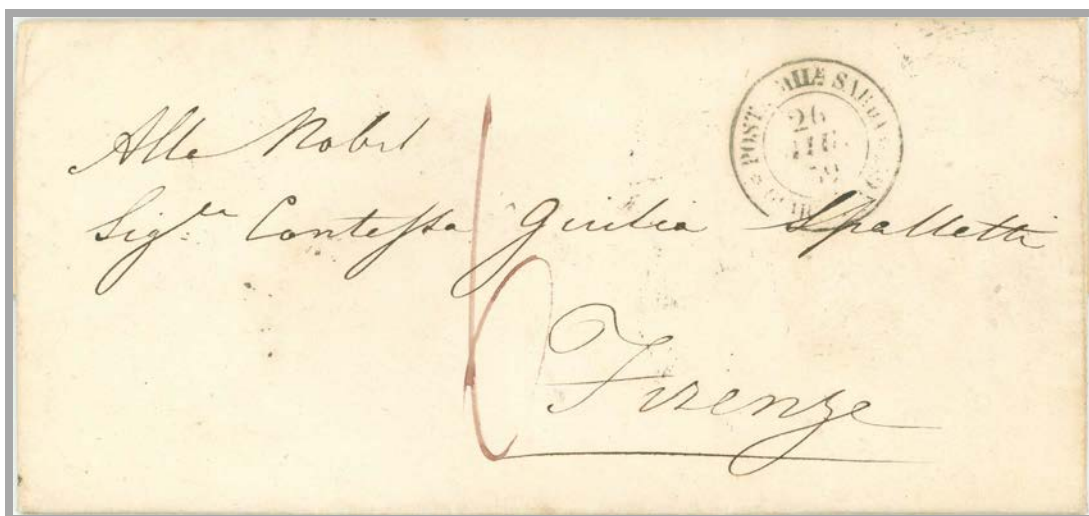 Alla Nobil
Sig.ra Contessa Giulia Spalletti
Firenze
6
POST. MIL.E SARDA
26
59